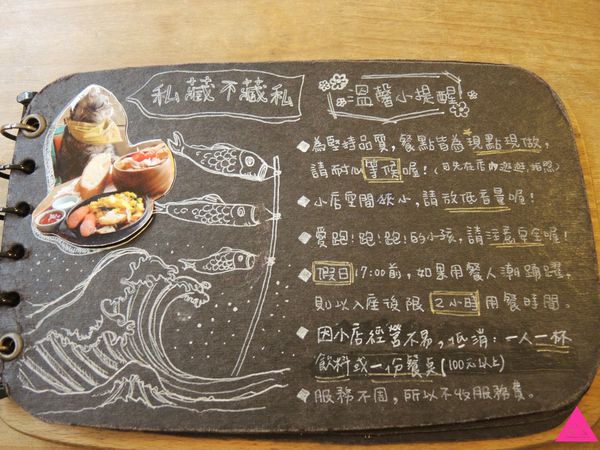 私藏不藏私
溫馨小提醒
◆為堅持品質,餐點皆為現點現做,
請耐心等候喔!(可先在店內遊逛,拍照)
◆小店空間狹小,請放低音量喔!
◆愛跑!跑!跑!的小孩,請注意安全喔!
◆假日17:00前,如果用餐人潮踴躍,
則以入座後限2小時用餐時間。
◆因小店經營不易,低消:一人一杯
飲料或一份餐點(100元以上)
◆服務不周,所以不收服務費。